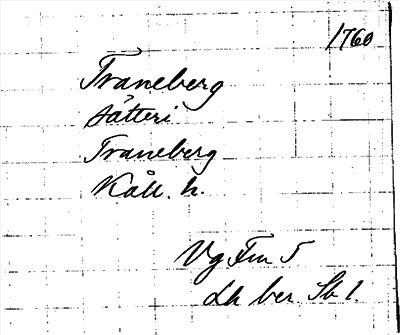 1760
Traneberg
säteri
Traneberg
Kåll. h.
Vg Fm 5
Lh ber. Sk 1.